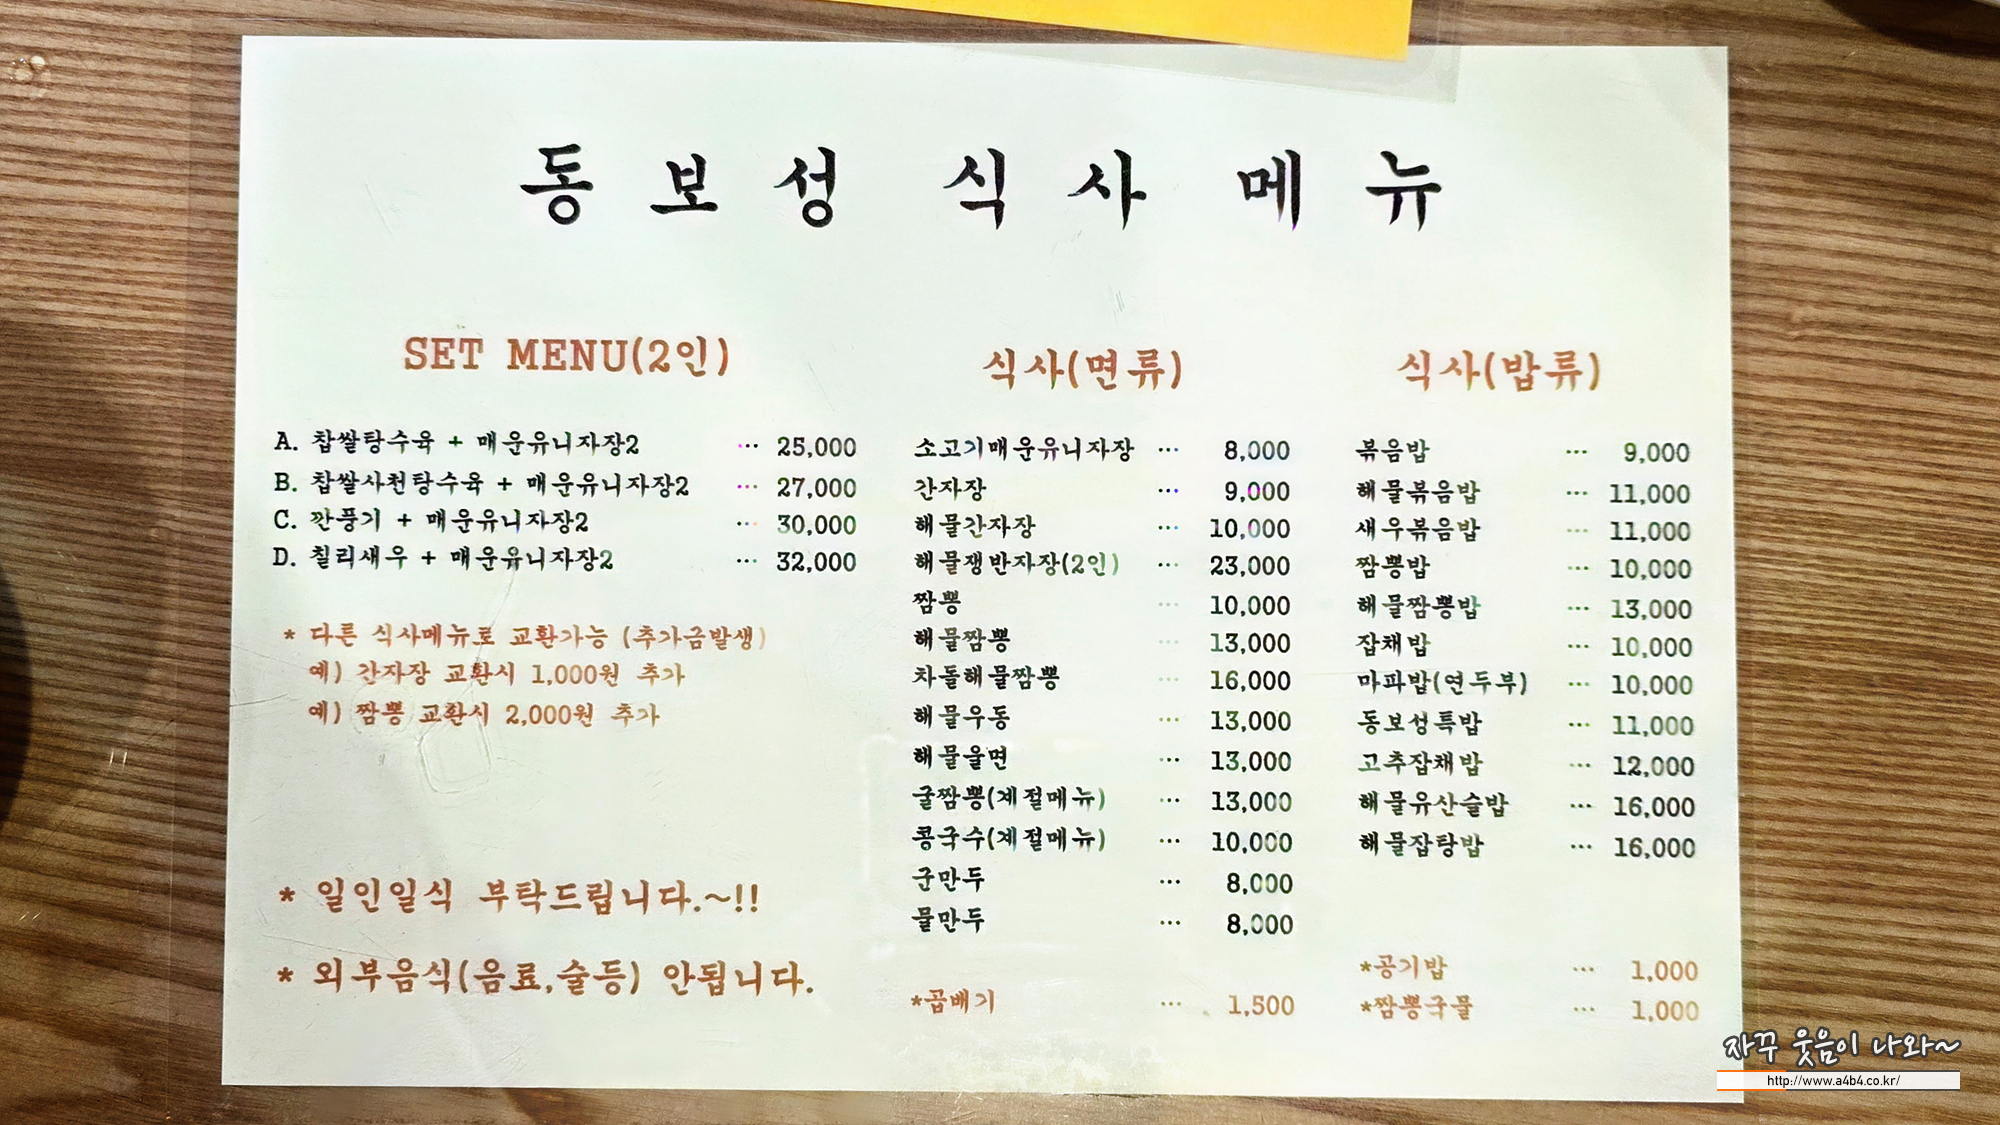 동보성 식사 메뉴
SET MENU(2인)
A. 찹쌀탕수육 + 매운유니자장2 ··· 25,000
B. 찹쌀사천탕수육 + 매운유니자장2 ··· 27,000
C. 깐풍기 + 매운유니자장2 ··· 30,000
D. 칠리새우 + 매운유니자장2 ··· 32,000
* 다른 식사메뉴로 교환가능 (추가금발생)
예) 간자장 교환시 1,000원 추가
예) 짬뽕 교환시 2,000원 추가
* 일인일식 부탁드립니다.~!!
* 외부음식(음료,술등) 안됩니다.
식사(면류)
소고기매운유니자장 ··· 8,000
간자장 ··· 9,000
해물간자장 ··· 10,000
해물쟁반자장(2인) ··· 23,000
짬뽕 ··· 10,000
해물짬뽕 ··· 13,000
차돌해물짬뽕 ··· 16,000
해물우동 ··· 13,000
해물울면 ··· 13,000
굴짬뽕(계절메뉴) ··· 13,000
콩국수(계절메뉴) ··· 10,000
군만두 ··· 8,000
물만두 ··· 8,000
*곱배기 ··· 1,500
식사(밥류)
볶음밥 ··· 9,000
해물볶음밥 ··· 11,000
새우볶음밥 ··· 11,000
짬뽕밥 ··· 10,000
해물짬뽕밥 ··· 13,000
잡채밥 ··· 10,000
마파밥(연두부) ··· 10,000
동보성특밥 ··· 11,000
고추잡채밥 ··· 12,000
해물유산슬밥 ··· 16,000
해물잡탕밥 ··· 16,000
*공기밥 ··· 1,000
*짬뽕국물 ··· 1,000
자꾸 웃음이 나와~
http://www.a4b4.co.kr/